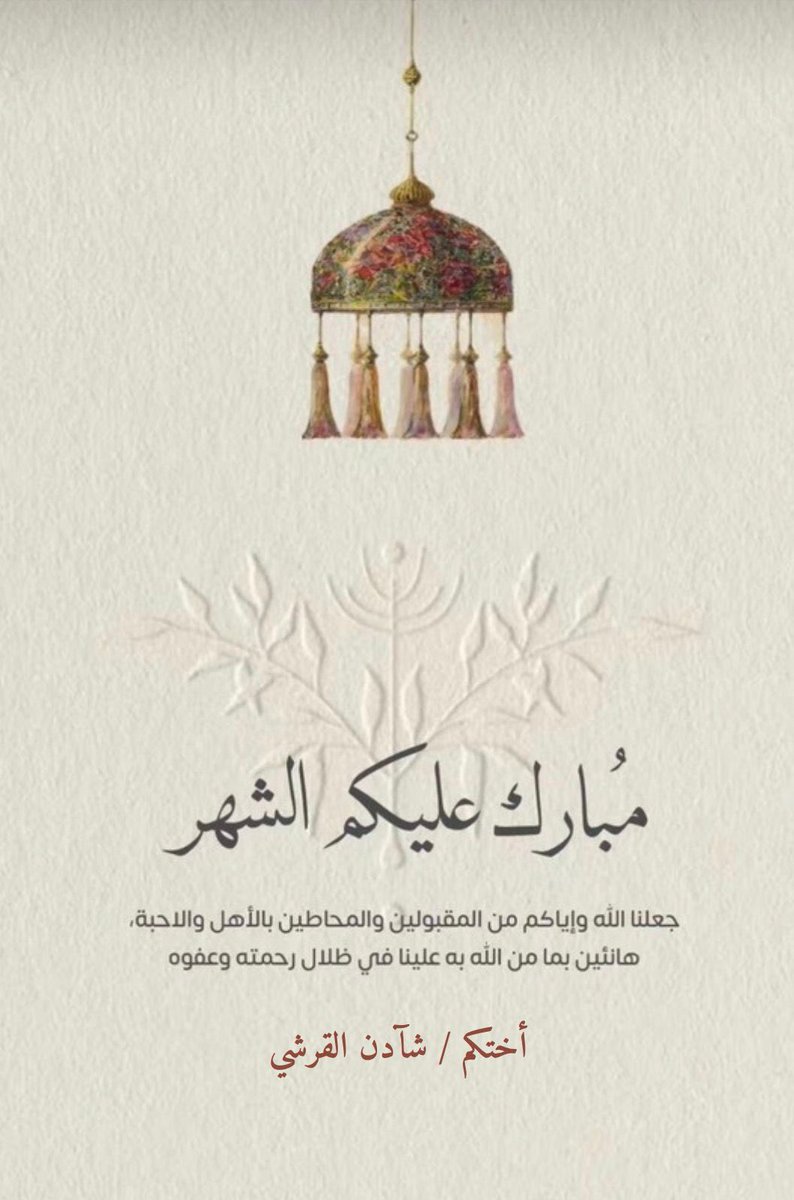 مُبارك عليكم الشهر
جعلنا الله وإياكم من المقبولين والمحاطين بالأهل والاحبة،
هانئين بما من الله به علينا في ظلال رحمته وعفوه
أختكم / شآدن القرشي